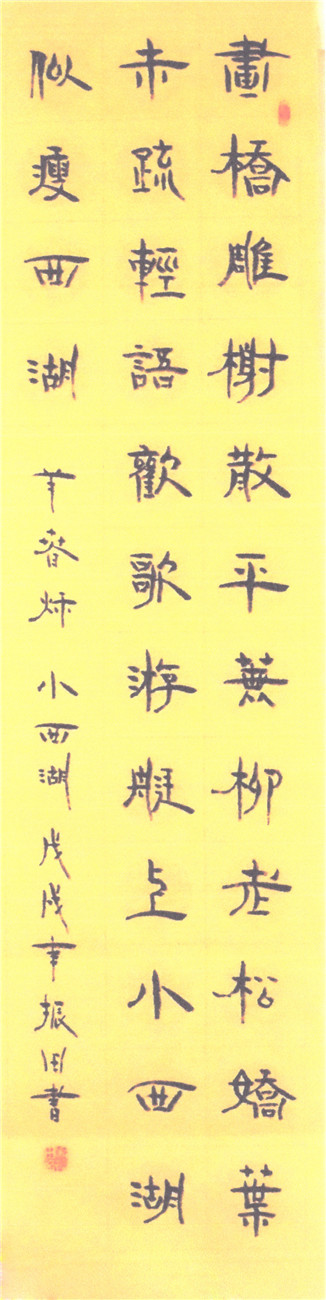 畫橋雕榭散平蕪柳老松嬌葉
未疏輕語歡歌游艇上小西湖
似瘦西湖 羊春秋 小西湖 戊戌年振書